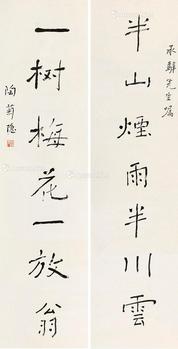 承驊先生属
半山煙雨半川雲
一树梅花一放翁
陶菊隐